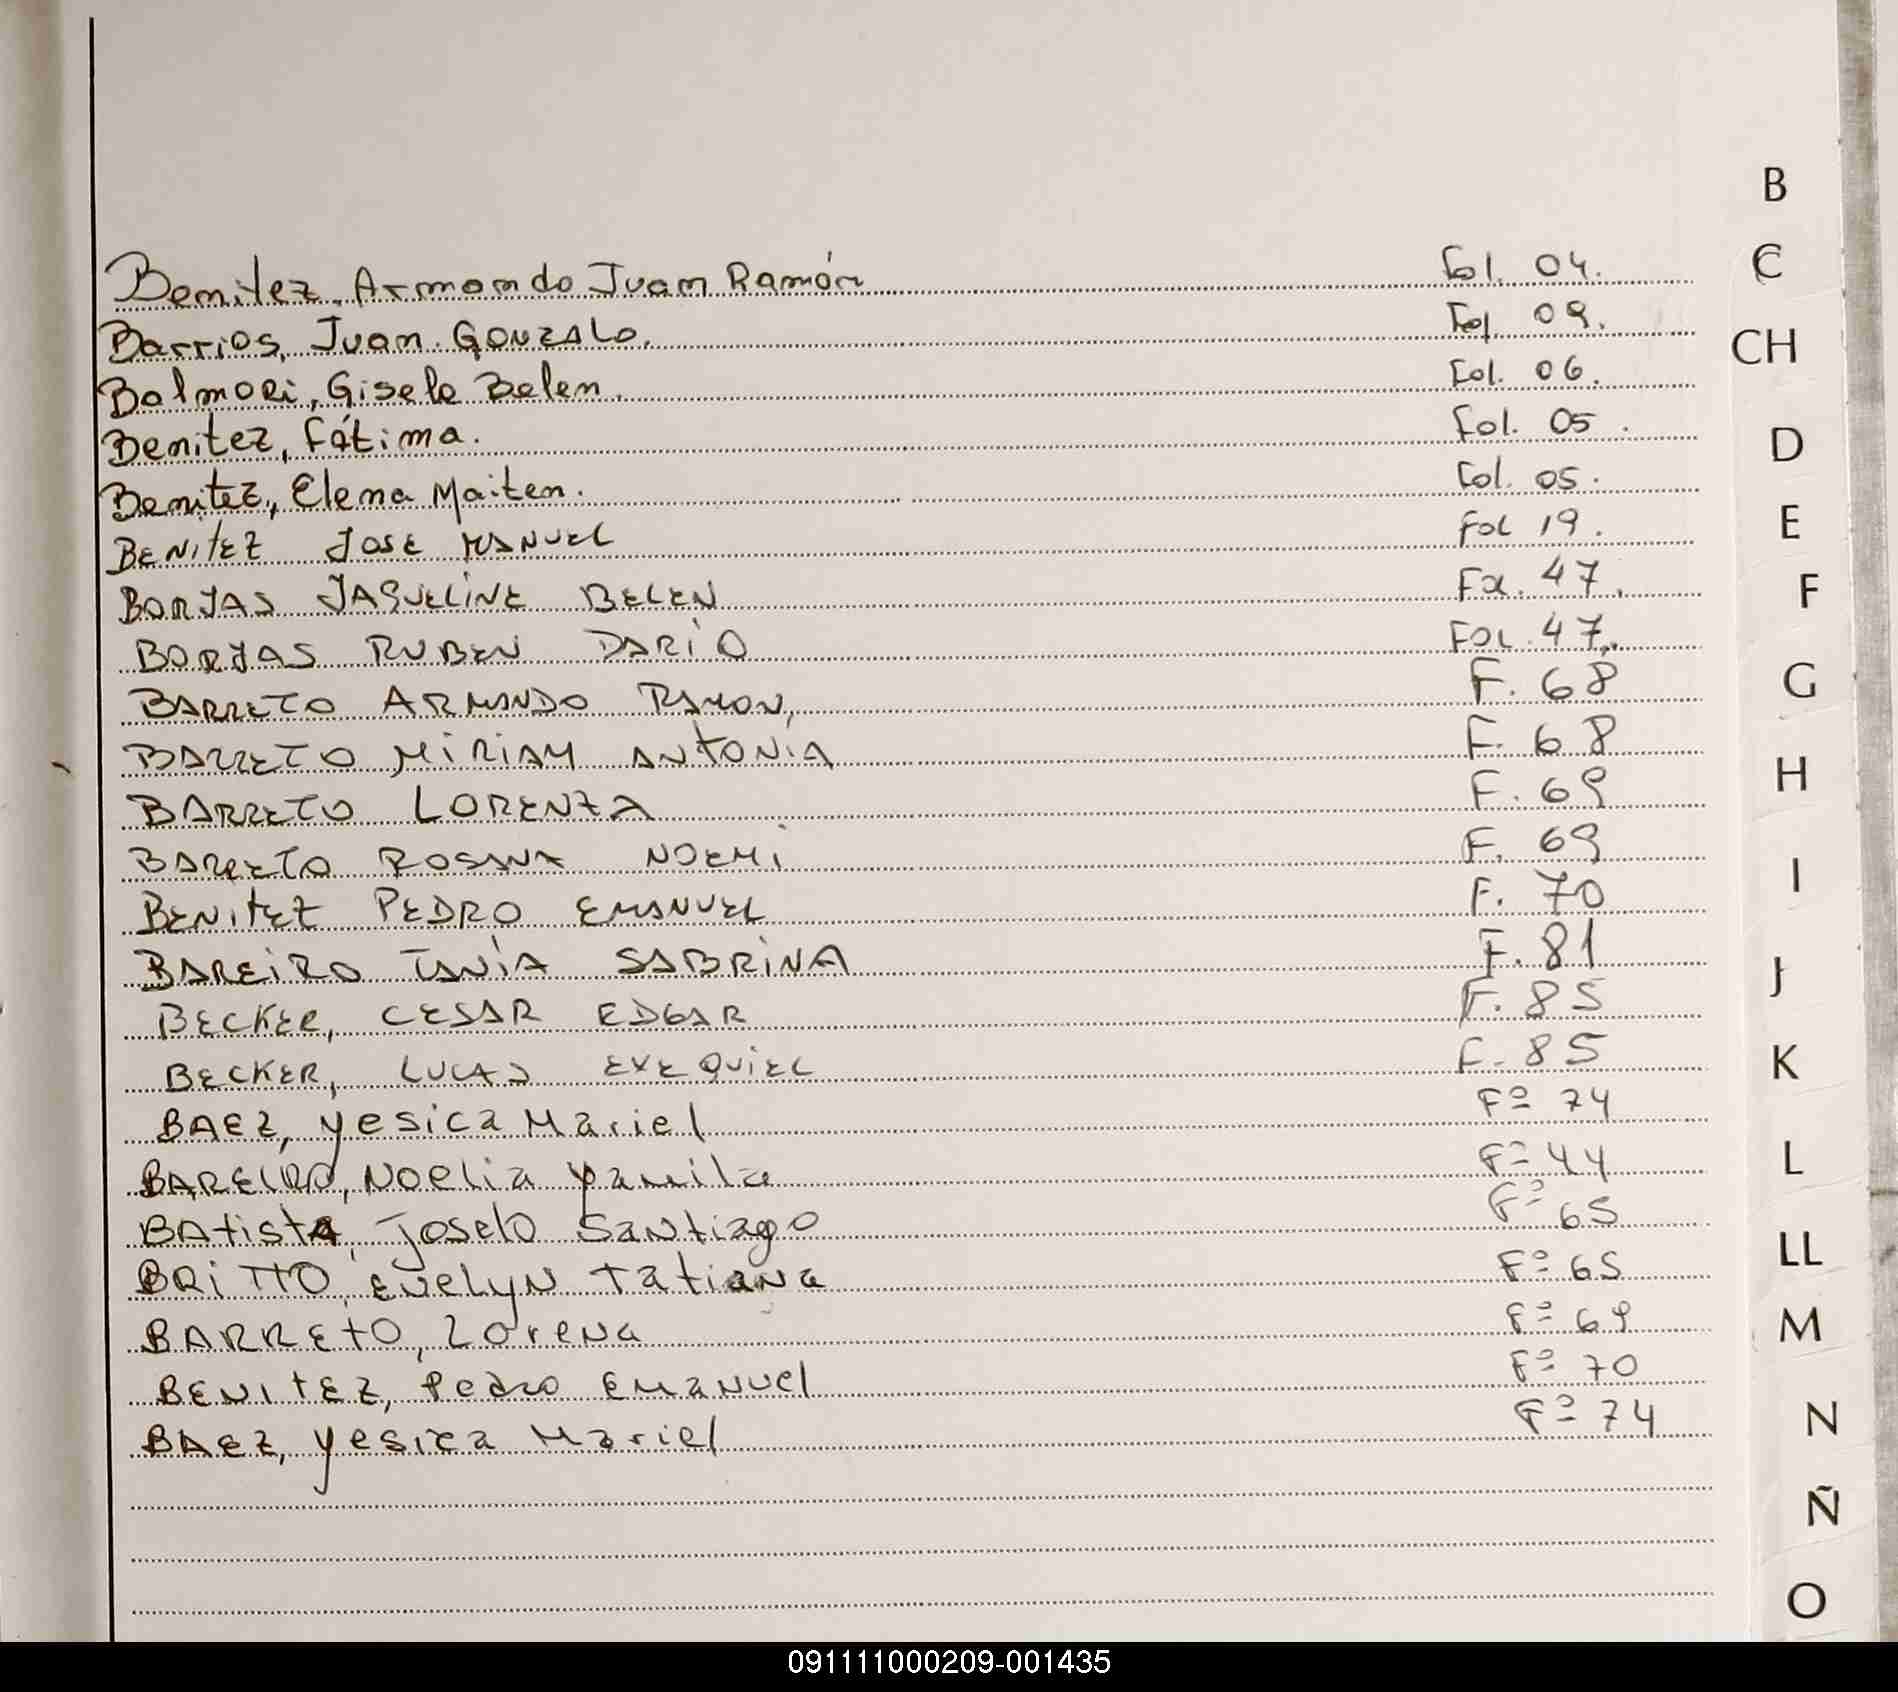 B
Benitez, Armando Juan Ramón Fol. 04.
C
Barrios, Juan Gonzalo. Fol 09.
CH
Balmori, Gisele Belen. Fol. 06.
Benitez, Fátima. Fol. 05.
D
Benitez, Elena Maiten. Fol. 05.
BENITEZ JOSE MANUEL Fol 19.
E
BORJAS JAQUELINE BELEN Fol. 47.
F
BORJAS RUBEN DARIO Fol. 47.
BARRETO ARMANDO RAMON, F. 68
G
BARRETO MIRIAM ANTONIA F. 68
H
BARRETO LORENZA F. 69
BARRETO ROSANA NOEMI F. 69
I
BENITEZ PEDRO EMANUEL F. 70
BAREIRO TANIA SABRINA F. 81
J
BECKER, CESAR EDGAR F. 85
K
BECKER, LUCAS EXEQUIEL F. 85
BAEZ, Yesica Mariel Fº 74
L
BAREIRO, Noelia Yamila Fº 44
BAtistA, Joselo Santiago Fº 65
LL
BRITTO, Evelyn Tatiana Fº 65
M
BARRETO, Lorena Fº 69
BENITEZ, Pedro Emanuel Fº 70
N
BAEZ, Yesica Mariel Fº 74
Ñ
O
091111000209-001435